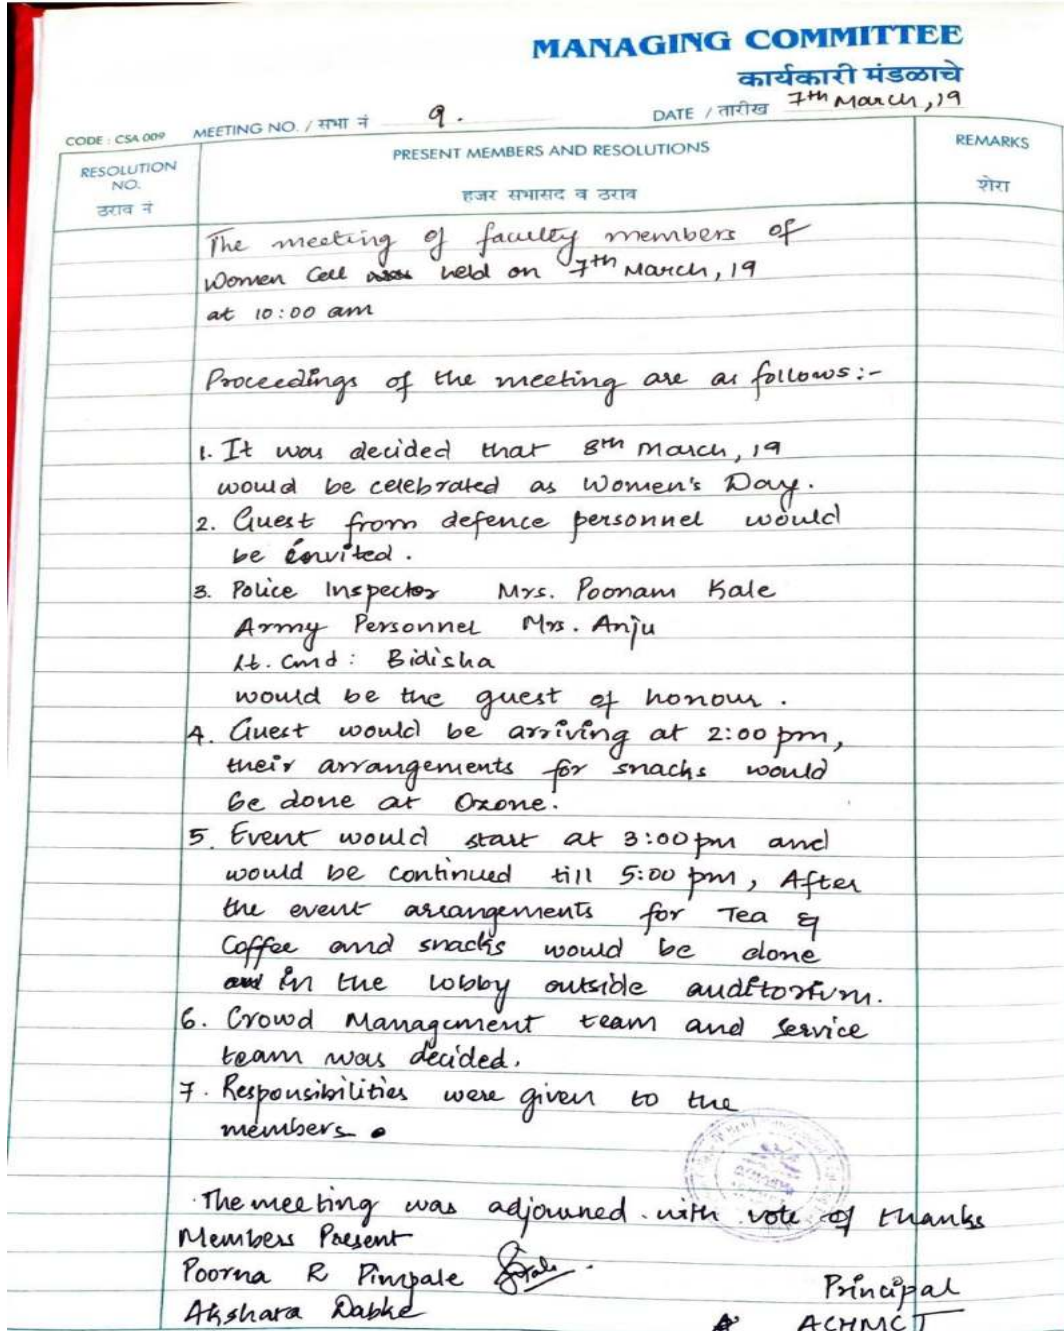 MANAGING COMMITTEE
कार्यकारी मंडळाचे
CODE : CSA 009 MEETING NO. / सभा नं 9. DATE / तारीख 7th March, 19
RESOLUTION NO. ठराव नं
PRESENT MEMBERS AND RESOLUTIONS
हजर सभासद व ठराव
REMARKS
शेरा
The meeting of faculty members of
Women Cell held on 7th March, 19
at 10:00 am
Proceedings of the meeting are as follows:-
1. It was decided that 8th March, 19
would be celebrated as Women's Day.
2. Guest from defence personnel would
be invited.
3. Police Inspector Mrs. Poonam Kale
Army Personnel Mrs. Anju
Lt. Cmd: Bidisha
would be the guest of honour.
4. Guest would be arriving at 2:00 pm,
their arrangements for snacks would
be done at Ozone.
5. Event would start at 3:00 pm and
would be continued till 5:00 pm, After
the event arrangements for Tea &
Coffee and snacks would be done
in the lobby outside auditorium.
6. Crowd Management team and service
team was decided.
7. Responsibilities were given to the
members.
The meeting was adjourned with vote of thanks
Members Present
Poorna R Pimpale
Akshara Dabke
Principal
ACHMCT